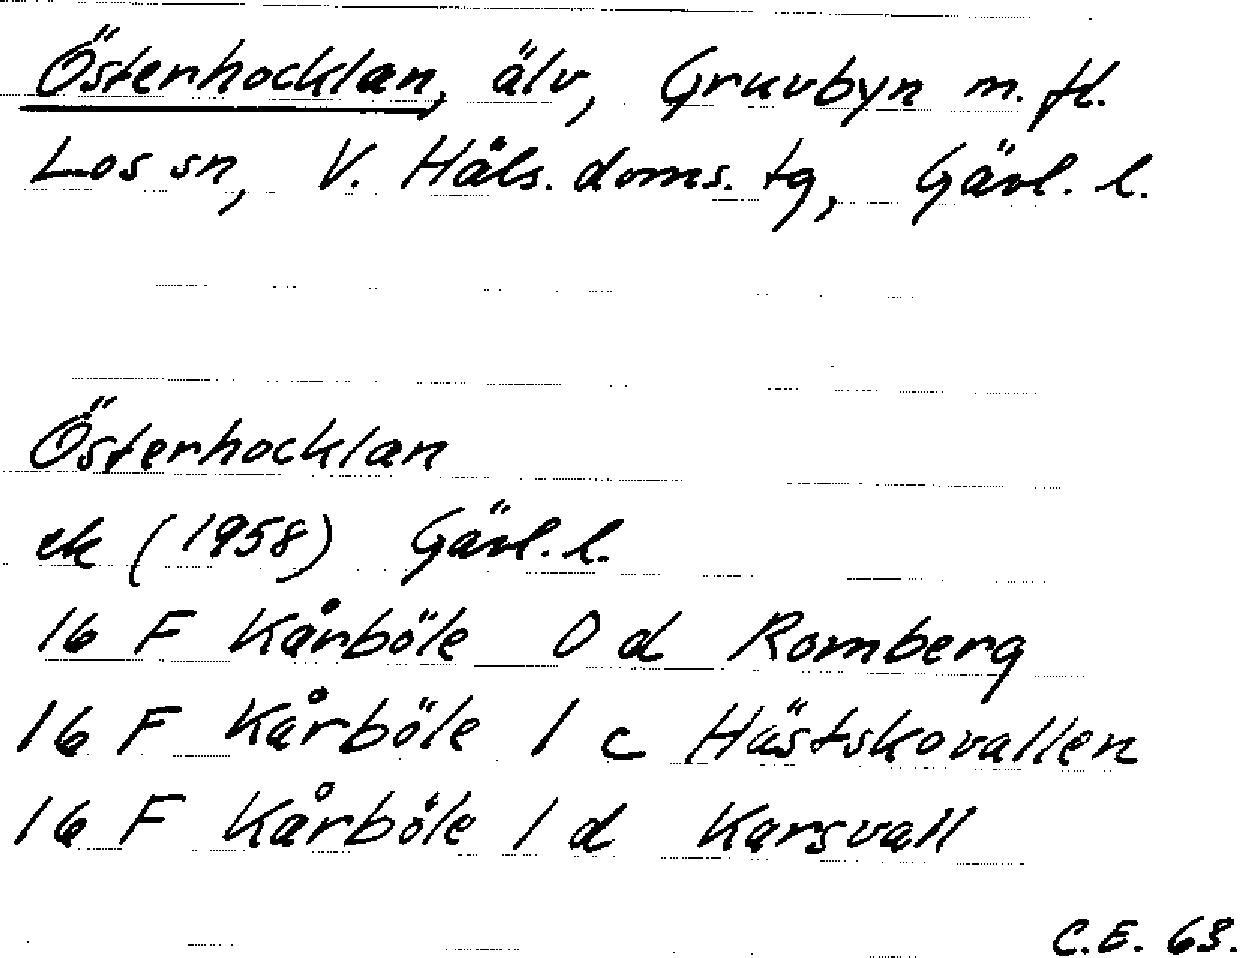 Österhocklan, älv, Gruvbyn m. fl.
Los sn, V. Häls. doms. tg, Gävl. l.
Österhocklan
ek (1958) Gävl. l.
16 F Kårböle 0 d Romberg
16 F Kårböle 1 c Hästskovallen
16 F Kårböle 1 d Karsvall
C.E. 63.